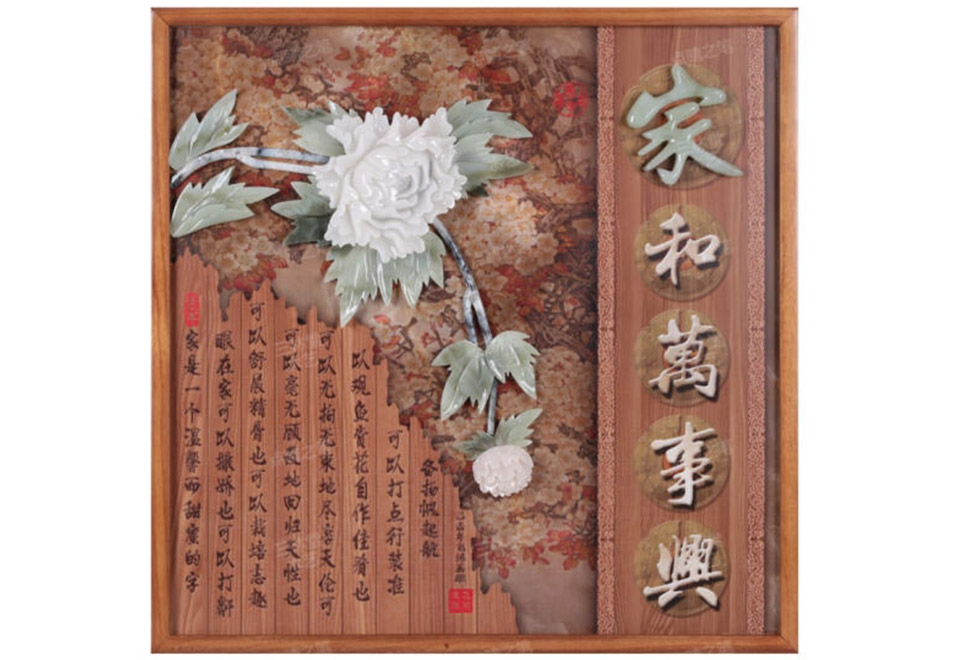 家和萬事興
家是一个温馨而甜蜜的字
眼在家可以撒娇也可以打鼾
可以舒展精骨也可以栽培志趣
可以毫无顾忌地回归天性也
可以无拘无束地尽享天伦可
以观鱼赏花自作佳肴也
可以打点行装准
备扬帆起航